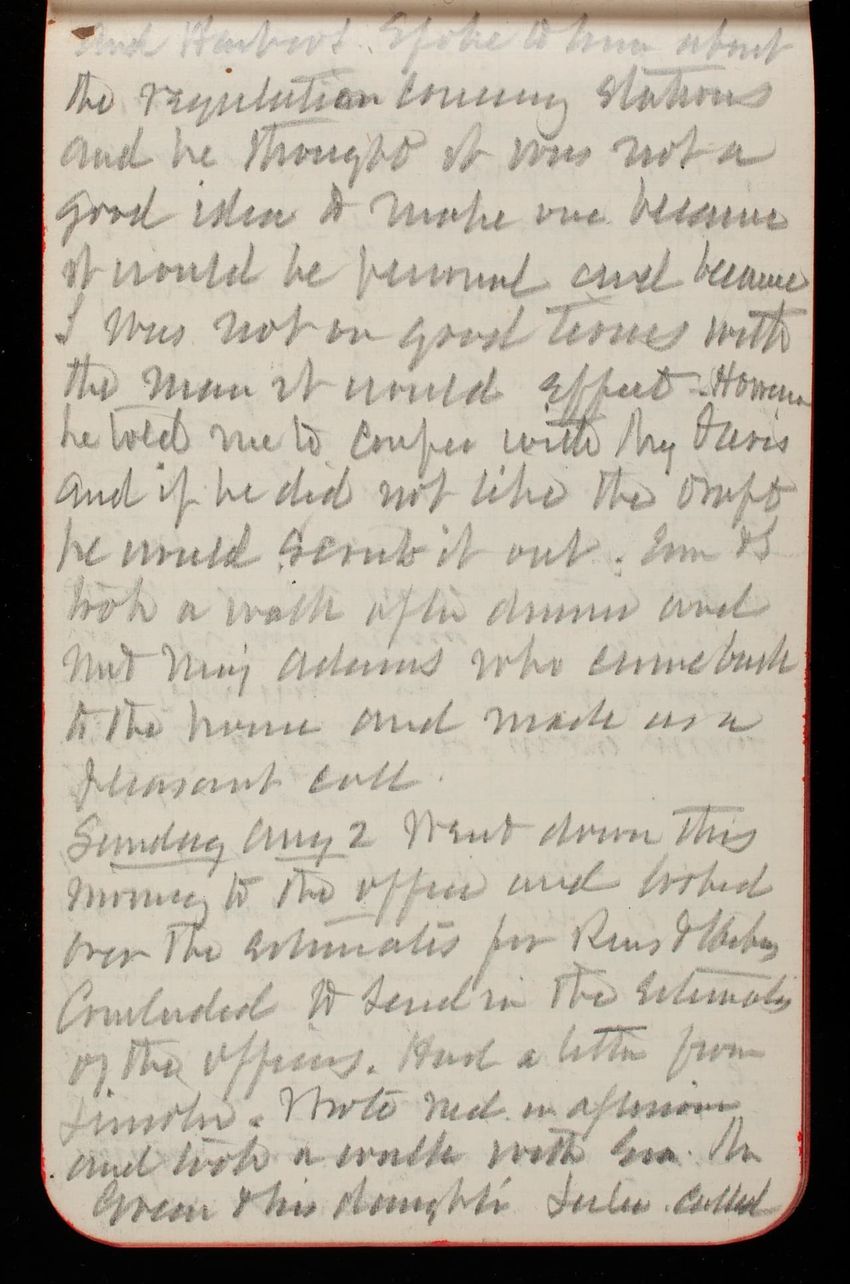 and Herbert. Spoke to him about
the regulation coming stations
and he thought it was not a
good idea to make one because
it would be personal and because
I was not on good terms with
the man it would effect. However
he told me to confer with Davis
and if he did not like the draft
he would scrub it out. Em & I
took a walk after dinner and
met Maj Adams who came back
to the house and made us a
pleasant call.
Sunday Aug 2 Went down this
morning to the office and looked
over the estimates for Rivers & Harbors
Concluded to send in the Estimates
of the officers. Had a letter from
Lincoln. Wrote Ned in afternoon
and took a walk with Em.
Green & his daughter called